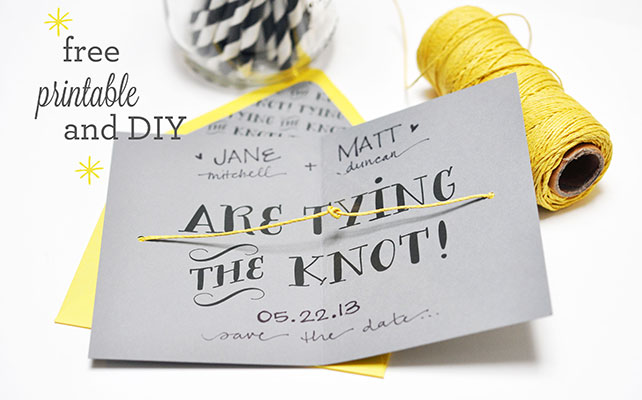 free
printable
and DIY
KNOT! TYING
THE KNOT!
JANE
mitchell
+
MATT
duncan
ARE TYING
THE KNOT!
05.22.13
save the date...